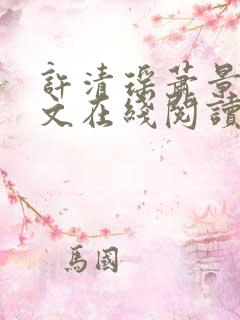 許清瑤蕭景
文在綫閱讀
馬國